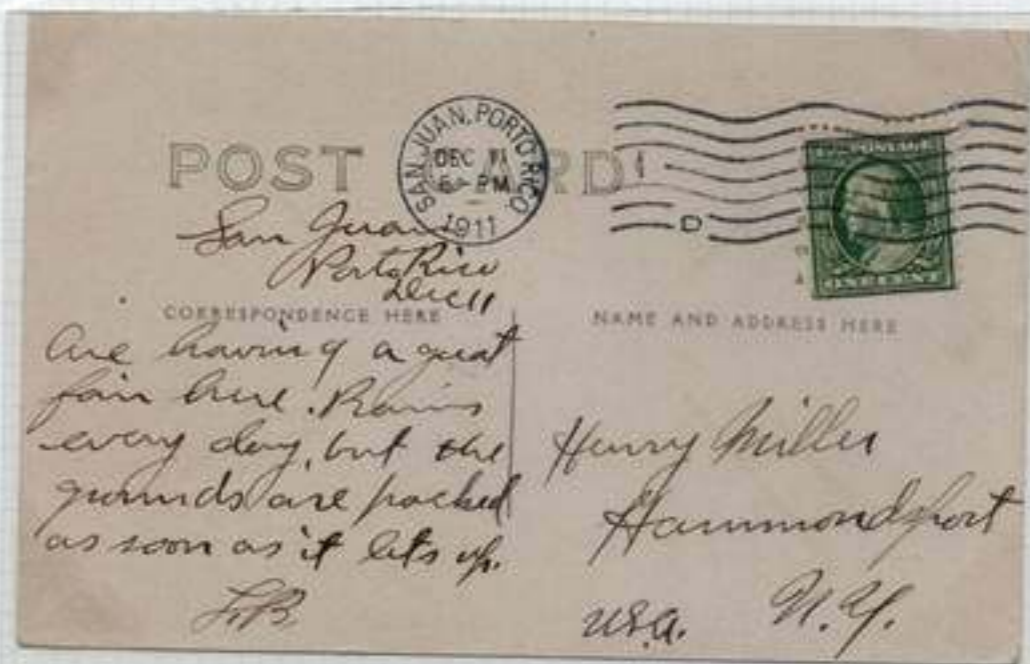 POST CARD
SAN JUAN, PORTO RICO
DEC 11
PM
1911
D
ONE CENT
San Juan
Porto Rico
Dec 11
CORRESPONDENCE HERE
NAME AND ADDRESS HERE
Are having a great
fair here. Rains
every day, but the
grounds are packed
as soon as it lets up.
Henry Miller
Hammondsport
N.Y.
U.S.A.